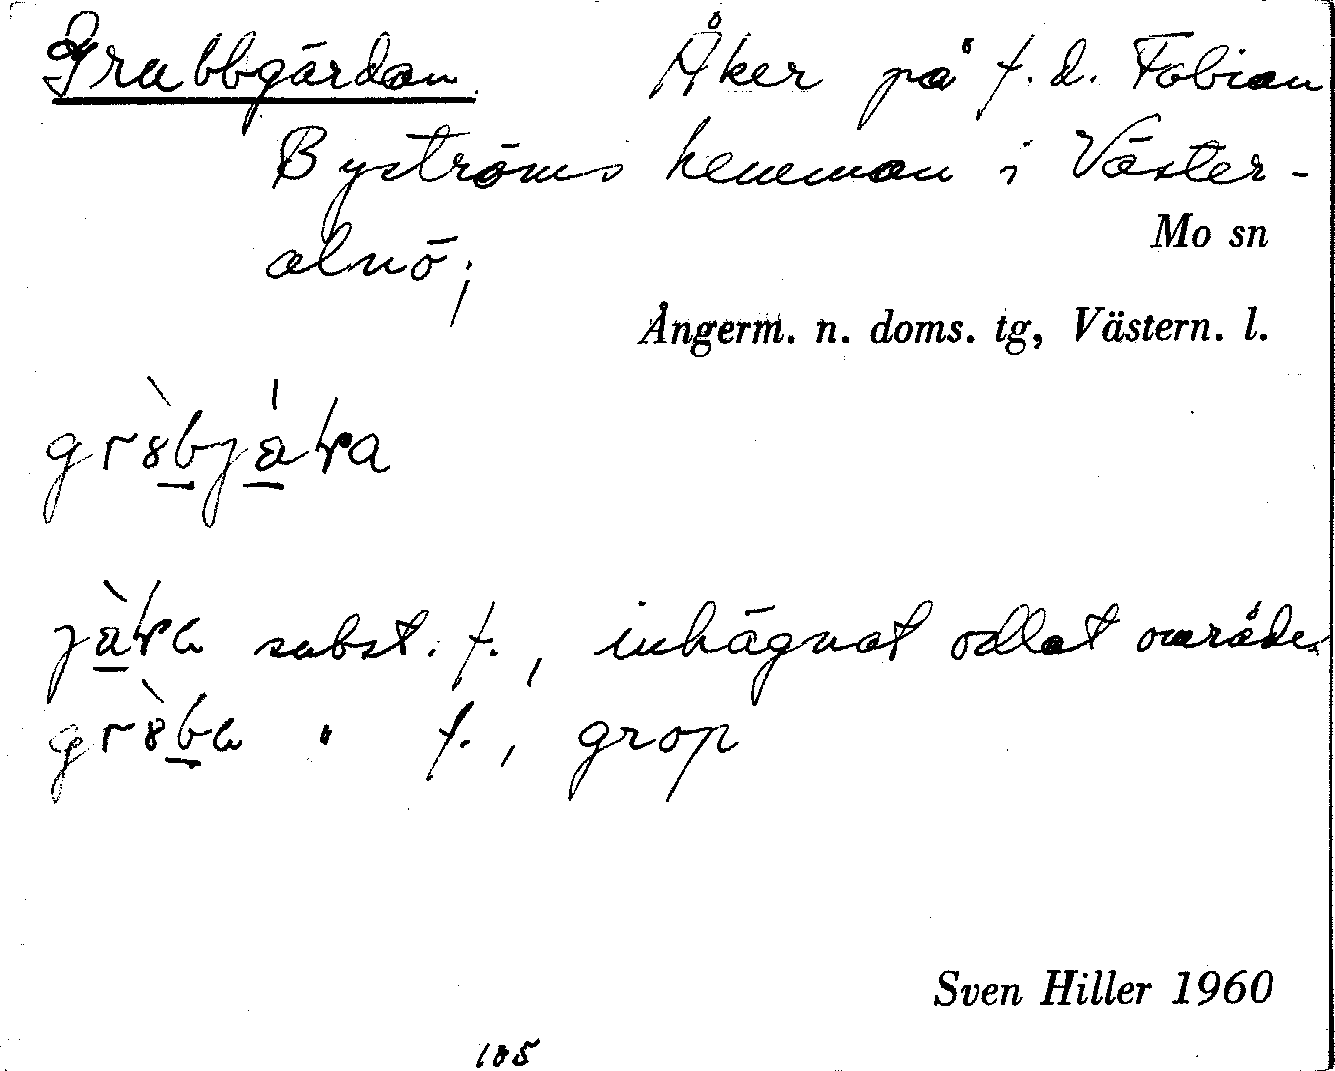 Grubbgärdan Åker på f. d. Fabian
Byströms hemman i Väster-
alnö;
Mo sn
Ångerm. n. doms. tg, Västern. l.
subst. f., inhägnat odlat område
" f., grop
Sven Hiller 1960
105